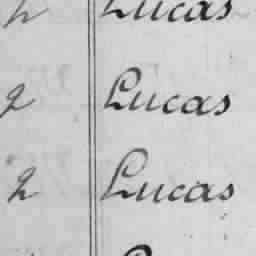 Lucas
2 Lucas
2 Lucas